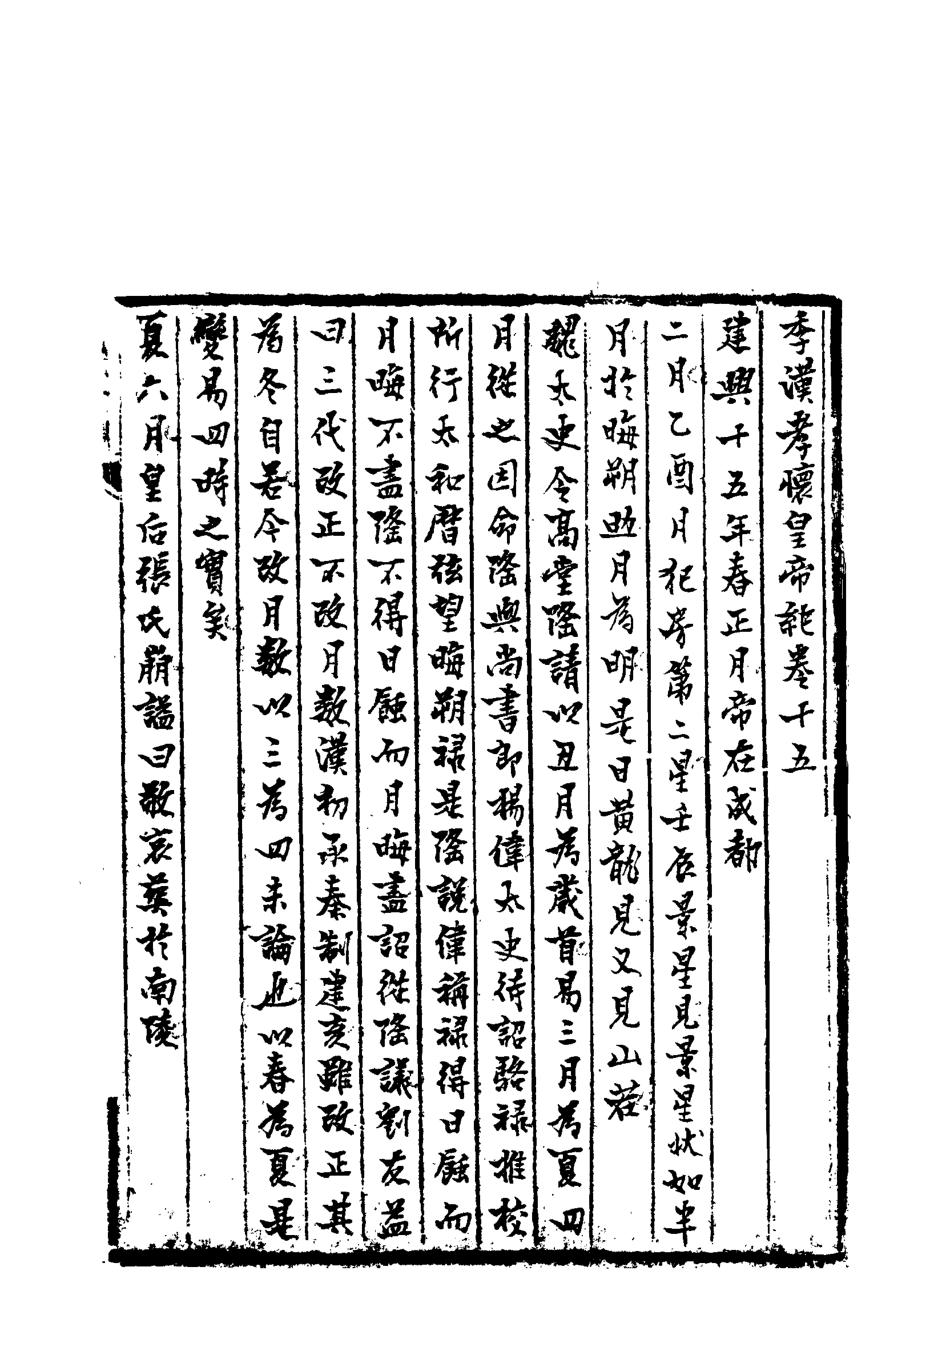 季漢孝懷皇帝紀卷十五
建興十五年春正月帝在成都
二月乙酉月犯房第二星壬辰景星見景星狀如半
月於晦朔助月為明是日黃龍見又見山茌
魏太史令高堂隆請以丑月為歲首易三月為夏四
月從之因命隆與尚書郎楊偉太史待詔駱祿推校
所行太和曆弦望晦朔祿是隆說偉稱祿得日蝕而
月晦不盡隆不得日蝕而月晦盡詔從隆議劉友益
曰三代改正不改月數漢初承秦制建亥雖改正其
為冬自若今改月數以三為四未論也以春為夏是
變易四時之實矣
夏六月皇后張氏崩諡曰敬哀葬於南陵